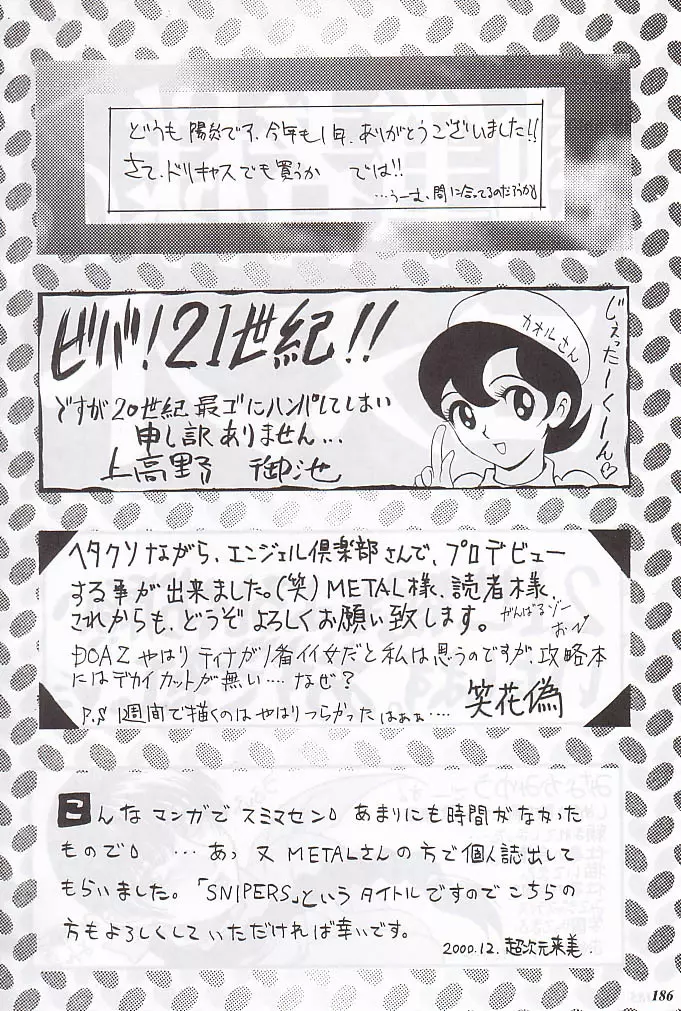 どうも 陽炎です、今年も1年、ありがとうございました!!
さて、ドリキャスでも買うか では!!
…うーむ、間に合ってるのだろうか
ビバ!21世紀!!
ですが20世紀最ゴにハンパしてしまい
申し訳ありません...
上高野 御池
カオルさん
じぇったーくーん♡
ヘタクソながら、エンジェル倶楽部さんで、プロデビュー
する事が出来ました。(笑)METAL様、読者様、
これからも、どうぞよろしくお願い致します。
がんばるゾー
おー
DOA2やはりティナが1番イイ女だと私は思うのですが、攻略本
にはデカイカットが無い‥‥なぜ?
P.S 1週間で描くのはやはりつらかった はぁぁ‥‥
笑花偽
こんなマンガでスミマセン。あまりにも時間がなかった
もので。…あっ又METALさんの方で個人誌出して
もらいました。「SNIPERS」というタイトルですのでこちらの
方もよろしくしていただければ幸いです。
2000.12. 超次元来美.
186